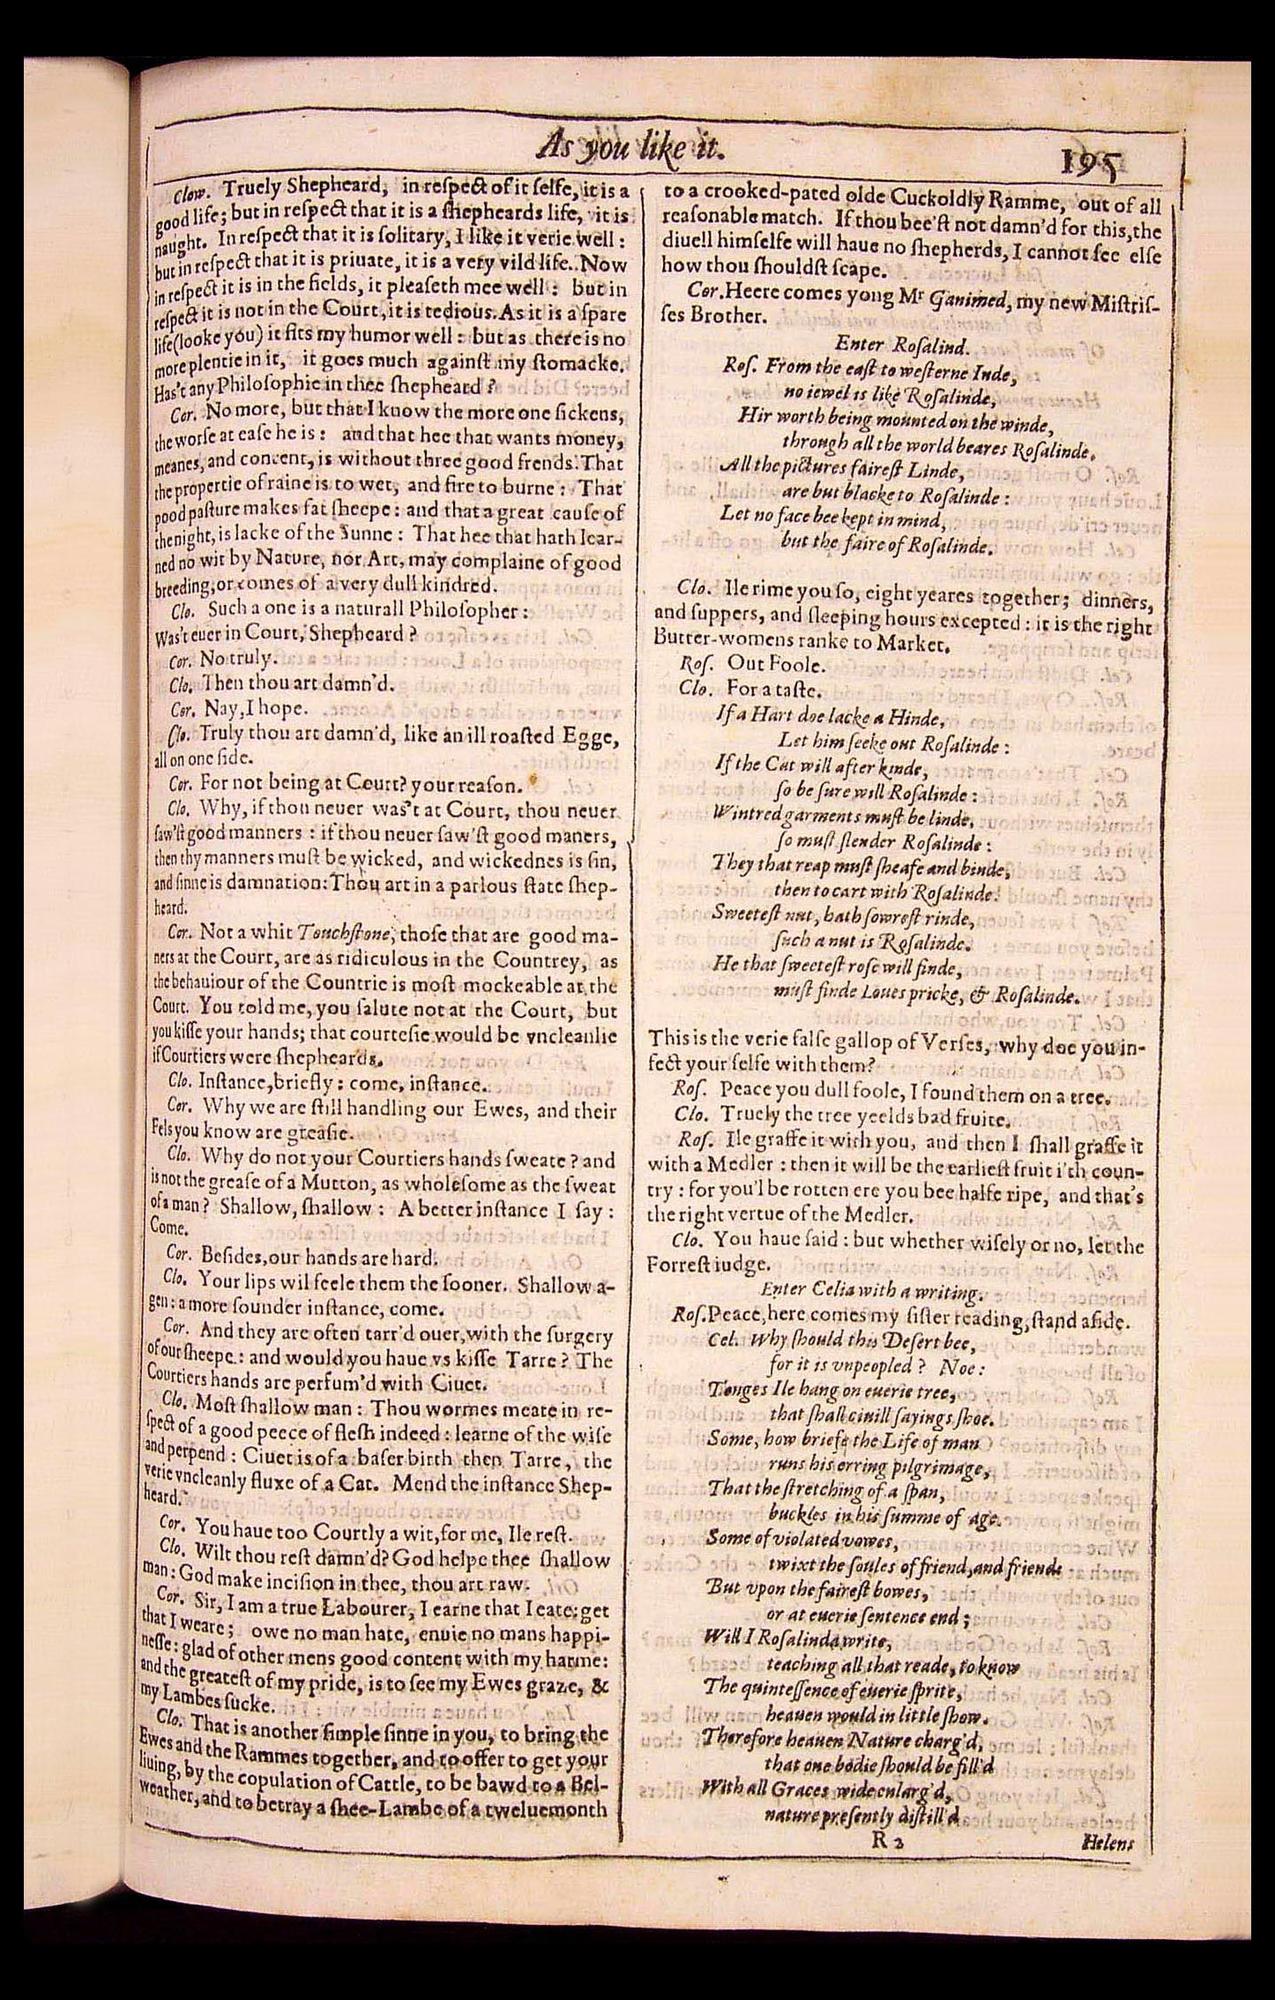 As you like it.
195
Clow. Truely Shepheard, in reſpect of it ſelfe, it is a
good life; but in reſpect that it is a ſhepheards life, it is
naught. In reſpect that it is ſolitary, I like it verie well:
but in reſpect that it is priuate, it is a very vild life. Now
in reſpect it is in the fields, it pleaſeth mee well: but in
reſpect it is not in the Court, it is tedious. As it is a ſpare
life (looke you) it fits my humor well: but as there is no
more plentie in it, it goes much againſt my ſtomacke.
Has't any Philoſophie in thee ſhepheard?
Cor. No more, but that I know the more one ſickens,
the worſe at eaſe he is: and that hee that wants money,
meanes, and content, is without three good frends. That
the propertie of raine is to wet, and fire to burne: That
pood paſture makes fat ſheepe: and that a great cauſe of
the night, is lacke of the Sunne: That hee that hath lear-
ned no wit by Nature, nor Art, may complaine of good
breeding, or comes of a very dull kindred.
Clo. Such a one is a naturall Philoſopher:
Was't euer in Court, Shepheard?
Cor. No truly.
Clo. Then thou art damn'd.
Cor. Nay, I hope.
Clo. Truly thou art damn'd, like an ill roaſted Egge,
all on one ſide.
Cor. For not being at Court? your reaſon.
Clo. Why, if thou neuer was't at Court, thou neuer
ſaw'ſt good manners: if thou neuer ſaw'ſt good maners,
then thy manners muſt be wicked, and wickednes is ſin,
and ſinne is damnation: Thou art in a parlous ſtate ſhep-
heard.
Cor. Not a whit Touchſtone, thoſe that are good ma-
ners at the Court, are as ridiculous in the Countrey, as
the behauiour of the Countrie is moſt mockeable at the
Court. You told me, you ſalute not at the Court, but
you kiſſe your hands; that courteſie would be vncleanlie
if Courtiers were ſhepheards.
Clo. Inſtance, briefly: come, inſtance.
Cor. Why we are ſtill handling our Ewes, and their
Fels you know are greaſie.
Clo. Why do not your Courtiers hands ſweate? and
is not the greaſe of a Mutton, as wholeſome as the ſweat
of a man? Shallow, ſhallow: A better inſtance I ſay:
Come.
Cor. Beſides, our hands are hard.
Clo. Your lips wil feele them the ſooner. Shallow a-
gen: a more ſounder inſtance, come.
Cor. And they are often tarr'd ouer, with the ſurgery
of our ſheepe: and would you haue vs kiſſe Tarre? The
Courtiers hands are perfum'd with Ciuet.
Clo. Moſt ſhallow man: Thou wormes meate in re-
ſpect of a good peece of fleſh indeed: learne of the wiſe
and perpend: Ciuet is of a baſer birth then Tarre, the
verie vncleanly fluxe of a Cat. Mend the inſtance Shep-
heard.
Cor. You haue too Courtly a wit, for me, Ile reſt.
Clo. Wilt thou reſt damn'd? God helpe thee ſhallow
man: God make inciſion in thee, thou art raw.
Cor. Sir, I am a true Labourer, I earne that I eate: get
that I weare; owe no man hate, enuie no mans happi-
neſſe: glad of other mens good content with my harme:
and the greateſt of my pride, is to ſee my Ewes graze, &
my Lambes ſucke.
Clo. That is another ſimple ſinne in you, to bring the
Ewes and the Rammes together, and to offer to get your
liuing, by the copulation of Cattle, to be bawd to a Bel-
weather, and to betray a ſhee-Lambe of a tweluemonth
to a crooked-pated olde Cuckoldly Ramme, out of all
reaſonable match. If thou bee'ſt not damn'd for this, the
diuell himſelfe will haue no ſhepherds, I cannot ſee elſe
how thou ſhouldſt ſcape.
Cor. Heere comes yong Mr Ganimed, my new Miſtriſ-
ſes Brother.
Enter Roſalind.
Roſ. From the eaſt to weſterne Inde,
no iewel is like Roſalinde,
Hir worth being mounted on the winde,
through all the world beares Roſalinde.
All the pictures faireſt Linde,
are but blacke to Roſalinde:
Let no face bee kept in mind,
but the faire of Roſalinde.
Clo. Ile rime you ſo, eight yeares together; dinners,
and ſuppers, and ſleeping hours excepted: it is the right
Butter-womens ranke to Market.
Roſ. Out Foole.
Clo. For a taſte.
If a Hart doe lacke a Hinde,
Let him ſeeke out Roſalinde:
If the Cat will after kinde,
ſo be ſure will Roſalinde:
Wintred garments muſt be linde,
ſo muſt ſlender Roſalinde:
They that reap muſt ſheafe and binde,
then to cart with Roſalinde.
Sweeteſt nut, hath ſowreſt rinde,
ſuch a nut is Roſalinde.
He that ſweeteſt roſe will finde,
muſt finde Loues pricke, & Roſalinde.
This is the verie falſe gallop of Verſes, why doe you in-
fect your ſelfe with them?
Roſ. Peace you dull foole, I found them on a tree.
Clo. Truely the tree yeelds bad fruite.
Roſ. Ile graffe it with you, and then I ſhall graffe it
with a Medler: then it will be the earlieſt fruit i'th coun-
try: for you'l be rotten ere you bee halfe ripe, and that's
the right vertue of the Medler.
Clo. You haue ſaid: but whether wiſely or no, let the
Forreſt iudge.
Enter Celia with a writing.
Roſ. Peace, here comes my ſiſter reading, ſtand aſide.
Cel. Why ſhould this Deſert bee,
for it is vnpeopled? Noe:
Tonges Ile hang on euerie tree,
that ſhall ciuill ſayings ſhoe.
Some, how briefe the Life of man
runs his erring pilgrimage,
That the ſtretching of a ſpan,
buckles in his ſumme of age.
Some of violated vowes,
twixt the ſoules of friend, and friend:
But vpon the faireſt bowes,
or at euerie ſentence end;
Will I Roſalinda write,
teaching all that reade, to know
The quinteſſence of euerie ſprite,
heauen would in little ſhow.
Therefore heauen Nature charg'd,
that one bodie ſhould be fill'd
With all Graces wide enlarg'd,
nature preſently diſtill'd
R 2
Helens